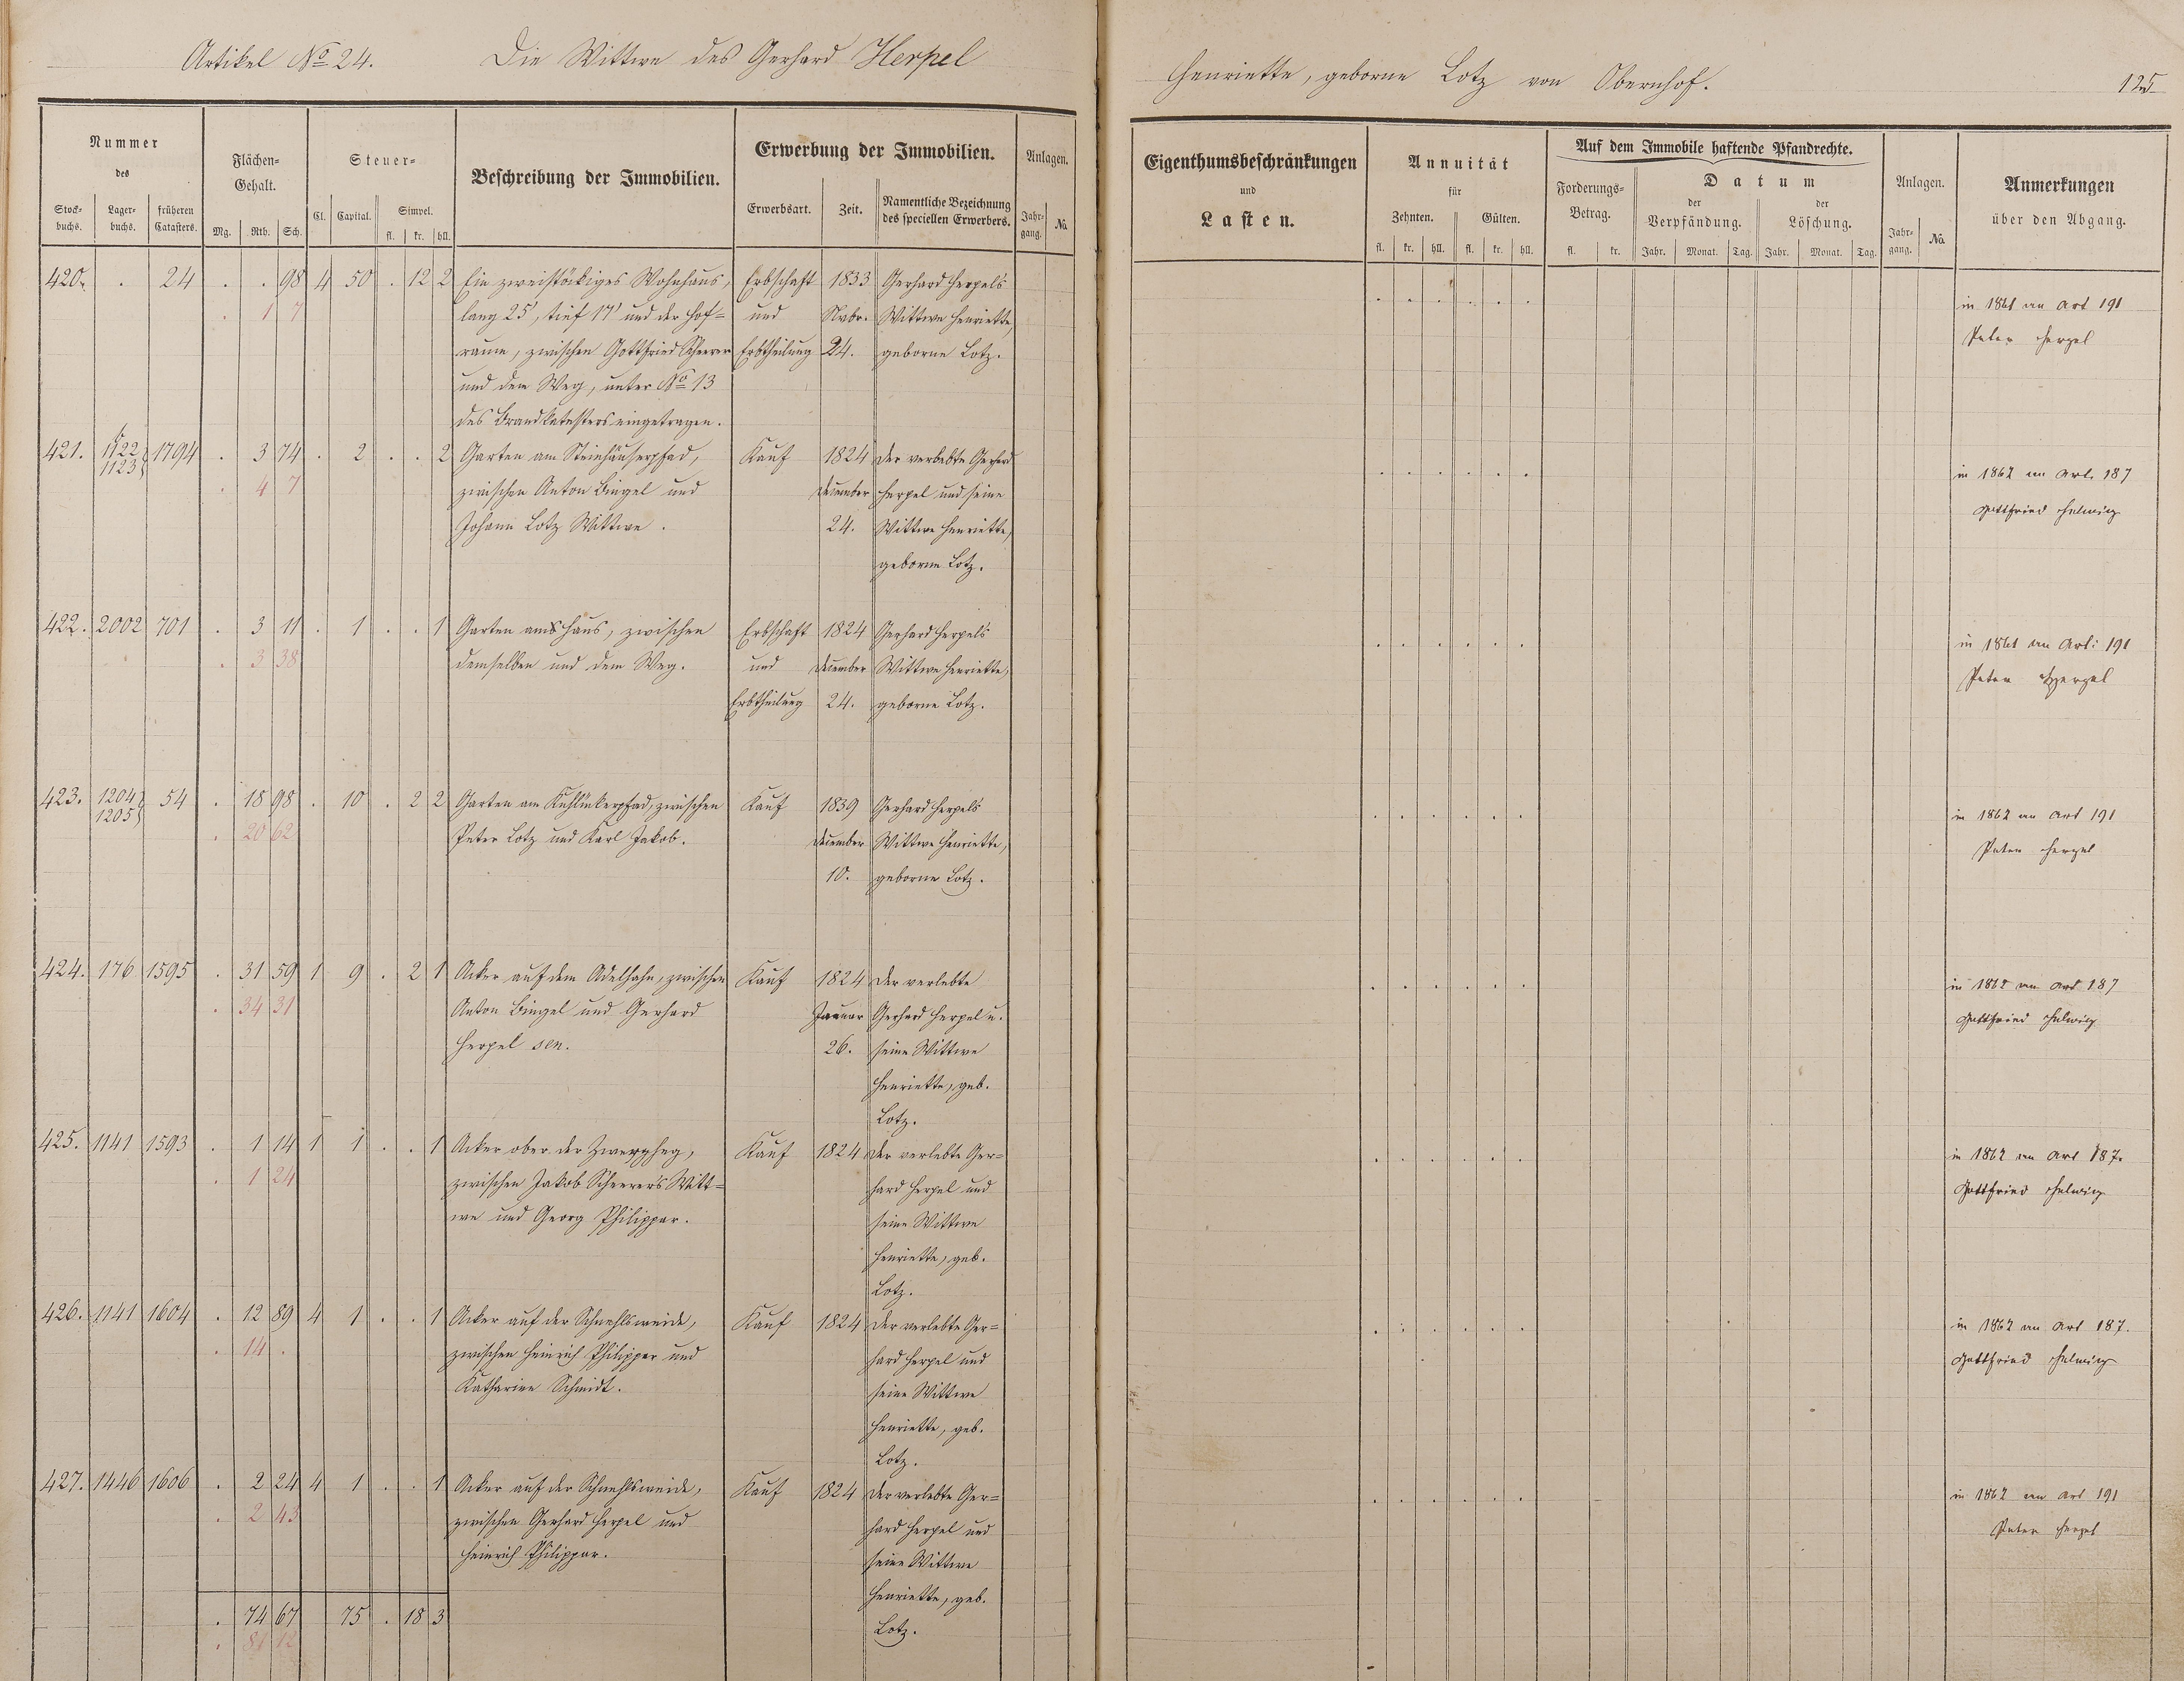 Artikel No 24. Die Wittwe des Gerhard Herpel
Henriette, geborne Lotz von Obernhof. 125
Nummer
des
Stock-buchs. Lager-buchs. früheren Catasters.
Flächen-Gehalt.
Mg. Rth. Sch.
Steuer-
Cl. Capital. Simpel.
fl. kr. hll.
Beschreibung der Immobilien.
Erwerbung der Immobilien.
Erwerbsart. Zeit. Namentliche Bezeichnung des speciellen Erwerbers.
Anlagen.
Jahr-gang. No.
Eigenthumsbeschränkungen
und
Lasten.
Annuität
für
Zehnten. Gülten.
fl. kr. hll. fl. kr. hll.
Auf dem Immobile haftende Pfandrechte.
Forderungs-Betrag.
fl. kr.
Datum
der Verpfändung. der Löschung.
Jahr. Monat. Tag. Jahr. Monat. Tag.
Anlagen.
Jahr-gang. No.
Anmerkungen
über den Abgang.
420. . 24 . . 98 4 50 . 12 2 Ein zweistöckiges Wohnhaus, Erbschaft 1833 Gerhard Herpel's
. 1 7 lang 25', tief 17' und der Hof= und Nvbr. Wittwe Henriette, in 1861 an Art 191
raum, zwischen Gottfried Scheerer Erbtheilung 24. geborne Lotz. Peter Herpel
und dem Weg, unter No 13
des Brandkatasters eingetragen.
421. 1122 1123 1794 . 3 74 . 2 . . 2 Garten am Steinhäuserpfad, Kauf 1824 der verlebte Gerhard in 1862 an Art. 187
. 4 7 zwischen Anton Bingel und December Herpel und seine Gottfried Helwig
Johann Lotz Wittwe. 24. Wittwe Henriette,
geborne Lotz.
422. 2002 701 . 3 11 . 1 . . 1 Garten ams Haus, zwischen Erbschaft 1824 Gerhard Herpel's in 1861 an Art: 191
. 3 38 demselben und dem Weg. und December Wittwe Henriette, Peter Herpel
Erbtheilung 24. geborne Lotz.
423. 1204 1205 54 . 18 98 . 10 . 2 2 Garten am zwischen Kauf 1839 Gerhard Herpel's in 1862 an Art 191
. 20 62 Peter Lotz und Karl Jakob. December Wittwe Henriette, Peter Herpel
10. geborne Lotz.
424. 176 1595 . 31 59 1 9 . 2 1 Acker auf dem Adelhahn, zwischen Kauf 1824 der verlebte in 1862 an Art 187
. 34 31 Anton Bingel und Gerhard Januar Gerhard Herpel u. Gottfried Helwig
Herpel sen. 26. seine Wittwe
Henriette, geb.
Lotz.
425. 1141 1593 . 1 14 1 1 . . 1 Acker ober der Kauf 1824 der verlebte Ger= in 1862 an Art 187.
. 1 24 zwischen Jakob Scheerer's Witt= hard Herpel und Gottfried Helwig
we und Georg Philippar. seine Wittwe
Henriette, geb.
Lotz.
426. 1141 1604 . 12 89 4 1 . . 1 Acker auf der Schnehlsweide, Kauf 1824 der verlebte Ger= in 1862 an Art 187.
. 14 . zwischen Heinrich Philippar und hard Herpel und Gottfried Helwig
Katharine Schmidt. seine Wittwe
Henriette, geb.
Lotz.
427. 1446 1606 . 2 24 4 1 . . 1 Acker auf der Schnehlsweide, Kauf 1824 der verlebte Ger= in 1862 an Art 191
. 2 43 zwischen Gerhard Herpel und hard Herpel und Peter Herpel
Heinrich Philippar. seine Wittwe
Henriette, geb.
. 74 67 75 . 18 3 Lotz.
. 81 12